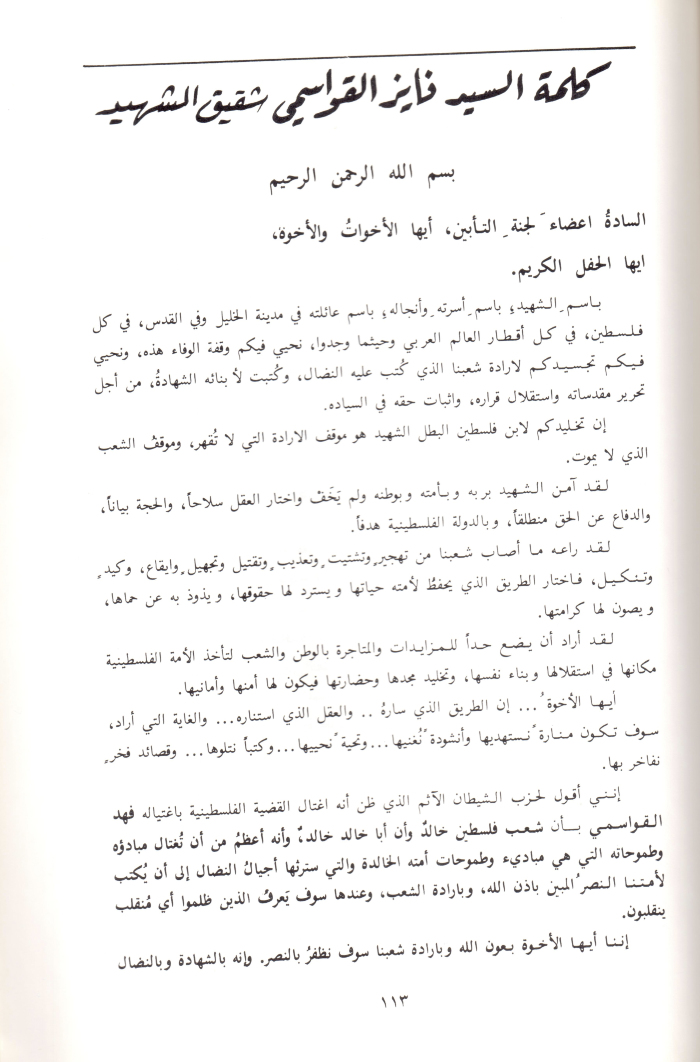 كلمة السيد فايز القواسمي شقيق الشهيد
بسم الله الرحمن الرحيم
السادةُ اعضاء َ لجنة ِ التأبين، أيها الأخواتُ والأخوة،
ايها الحفل الكريم.
باسم ِ الشهيدِ باسم ِ أسرته ِ وأنجاله ِ باسم عائلته في مدينة الخليل وفي القدس، في كل
فلسطين، في كل أقطار العالم العربي وحيثما وجدوا، نحيي فيكم وقفة الوفاء هذه، ونحيي
فيكم تجسيدكم لارادة شعبنا الذي كُتب عليه النضال، وكُتبت لأبنائه الشهادةُ، من أجل
تحرير مقدساته واستقلال قراره، واثبات حقه في السياده.
إن تخليدكم لابن فلسطين البطل الشهيد هو موقف الارادة التي لا تُقهر، وموقفُ الشعب
الذي لا يموت.
لقد آمن الشهيد بربه وبأمته وبوطنه ولم يَخَفْ واختار العقل سلاحاً، والحجة بياناً،
والدفاع عن الحق منطلقاً، وبالدولة الفلسطينية هدفاً.
لقد راعه ما أصاب شعبنا من تهجيرٍ وتشتيتٍ وتعذيبٍ وتقتيل وتجهيلٍ وايقاع، وكيدٍ
وتنكيل، فاختار الطريق الذي يحفظُ لأمته حياتها ويسترد لها حقوقها، ويذوذ به عن حماها،
ويصون لها كرامتها.
لقد أراد أن يضع حداً للمزايدات والمتاجرة بالوطن والشعب لتأخذ الأمة الفلسطينية
مكانها في استقلالها وبناء نفسها، وتخليد مجدها وحضارتها فيكون لها أمنها وأمانيها.
أيها الأخوة ُ... إن الطريق الذي سارهُ .. والعقل الذي استناره... والغاية التي أراد،
سوف تكون منارة ً نستهديها وأنشودة ً نُغنيها... وتحية ً نحييها... وكتباً نتلوها... وقصائد فخرٍ
نفاخر بها.
إنني أقول لحزب الشيطان الآثم الذي ظن أنه اغتال القضية الفلسطينية باغتياله فهد
القواسمي بأن شعب فلسطين خالدٌ وأن أبا خالد خالد، وأنه أعظمُ من أن تُغتال مبادؤه
وطموحاته التي هي مباديء وطموحات أمته الخالدة والتي سترثها أجيالُ النضال إلى أن يُكتب
لأمتنا النصرُ المبين باذن الله، وبارادة الشعب، وعندها سوف يَعرفُ الذين ظلموا أي مُنقلب
ينقلبون.
إننا أيها الأخوة بعون الله وبارادة شعبنا سوف نظفرُ بالنصر. وإنه بالشهادة وبالنضال
١١٣